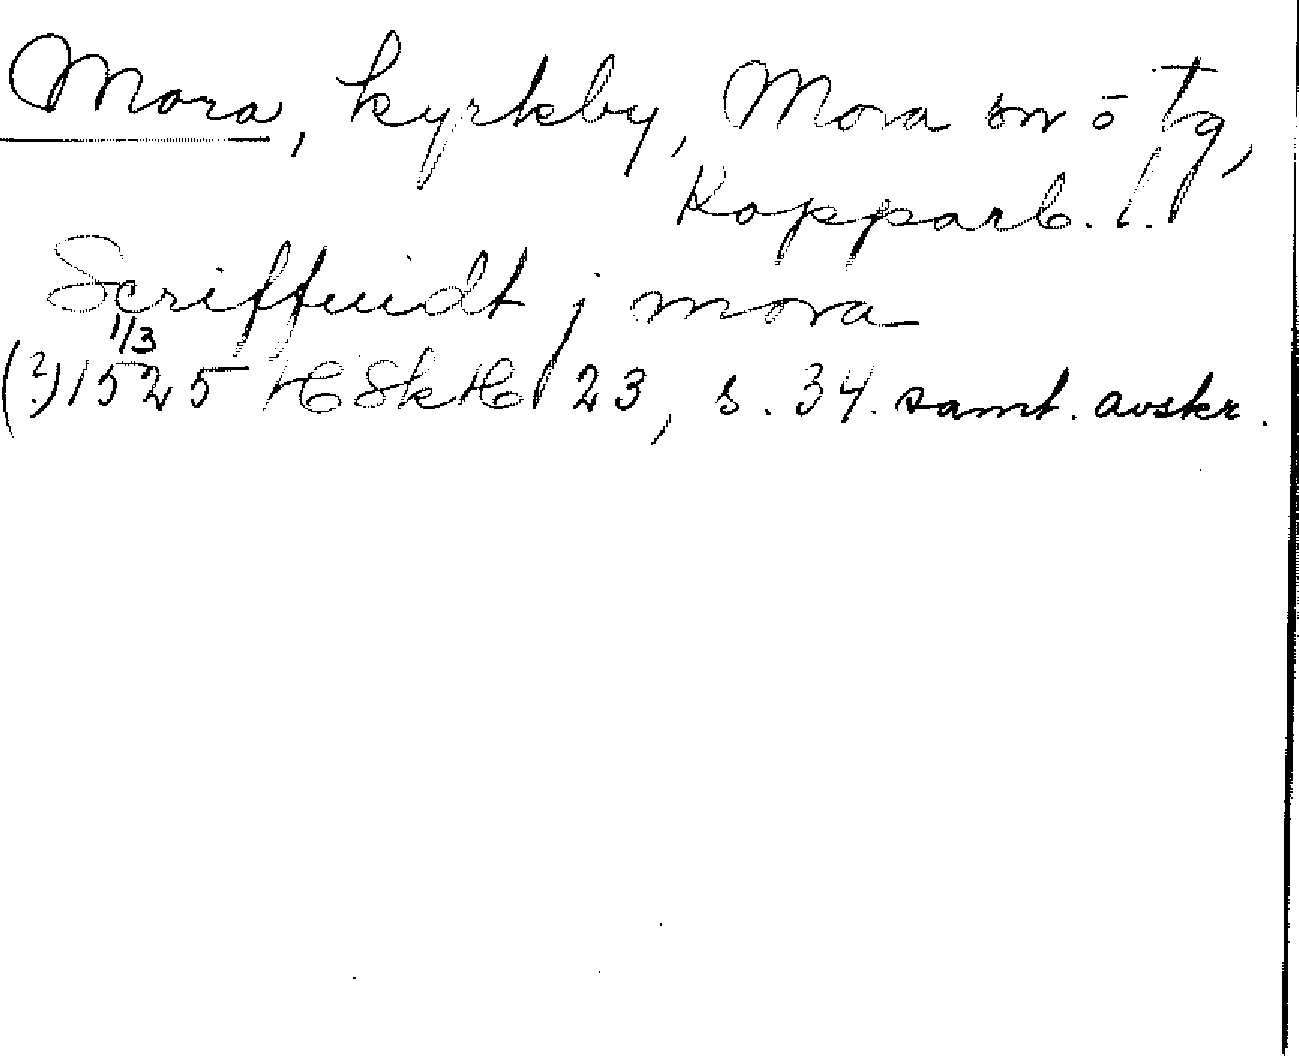 Mora, kyrkby, Mora sn o tg,
Kopparb. l.
Scriffuidt j mora
(?) 1525 1/3 HSkH 23, s. 34. samt. avskr.